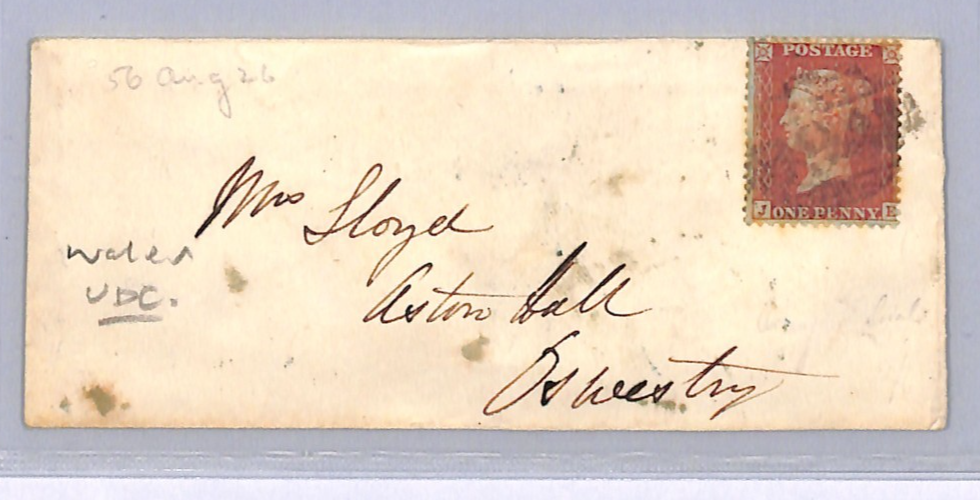 56 Aug 26
POSTAGE
J ONE PENNY E
Mrs Lloyd
Wales
UDC.
Aston Hall
Oswestry